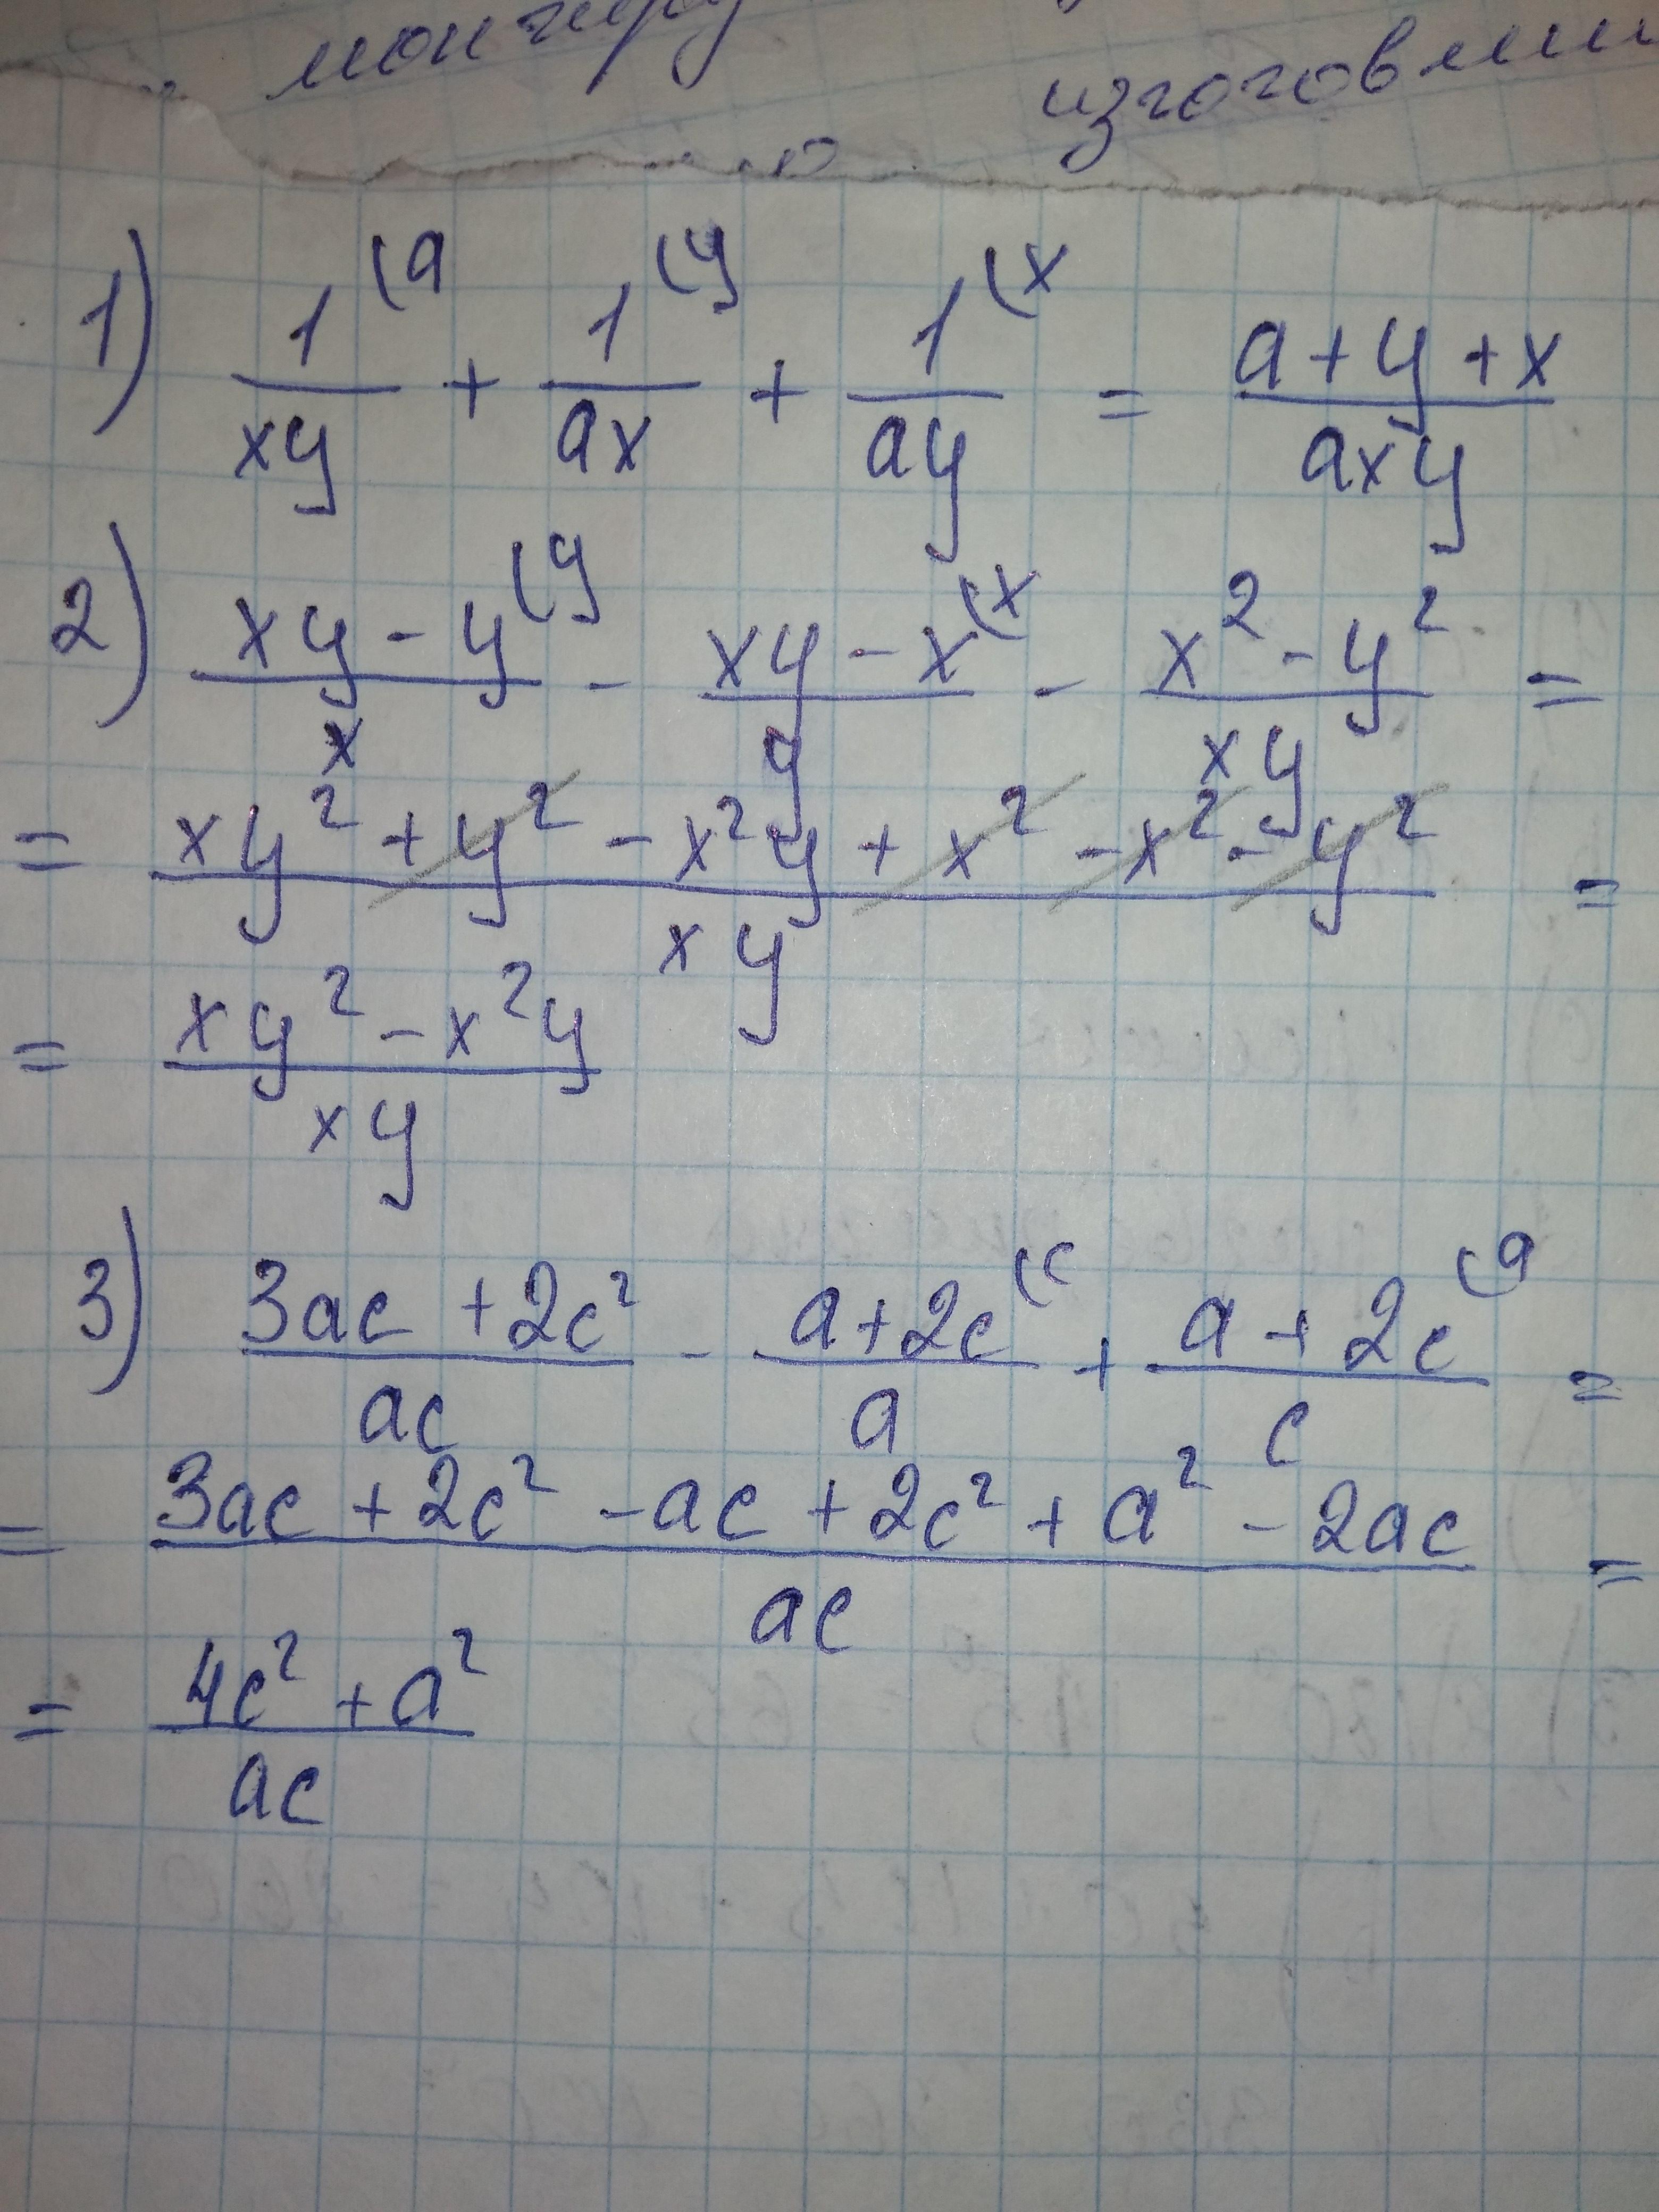 изготовлени
1) 1(a/xy + 1(y/ax + 1(x/ay = a+y+x/axy
2) xy-y(y/x - xy-x(x/y - x²-y²/xy =
= xy²+y²-x²y+x²-x²-y²/xy =
= xy²-x²y/xy
3) 3ac+2c²/ac - a+2c(c/a + a+2c(a/c =
= 3ac+2c²-ac+2c²+a²-2ac/ac =
= 4c²+a²/ac